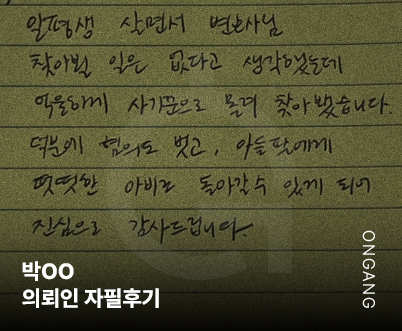 일평생 살면서 변호사님
찾아뵐 일은 없다고 생각했는데
억울하게 사기꾼으로 몰려 찾아뵀습니다.
덕분에 혐의도 벗고, 아들딸에게
떳떳한 아비로 돌아갈 수 있게 되어
진심으로 감사드립니다.
박OO
의뢰인 자필후기
ONGANG